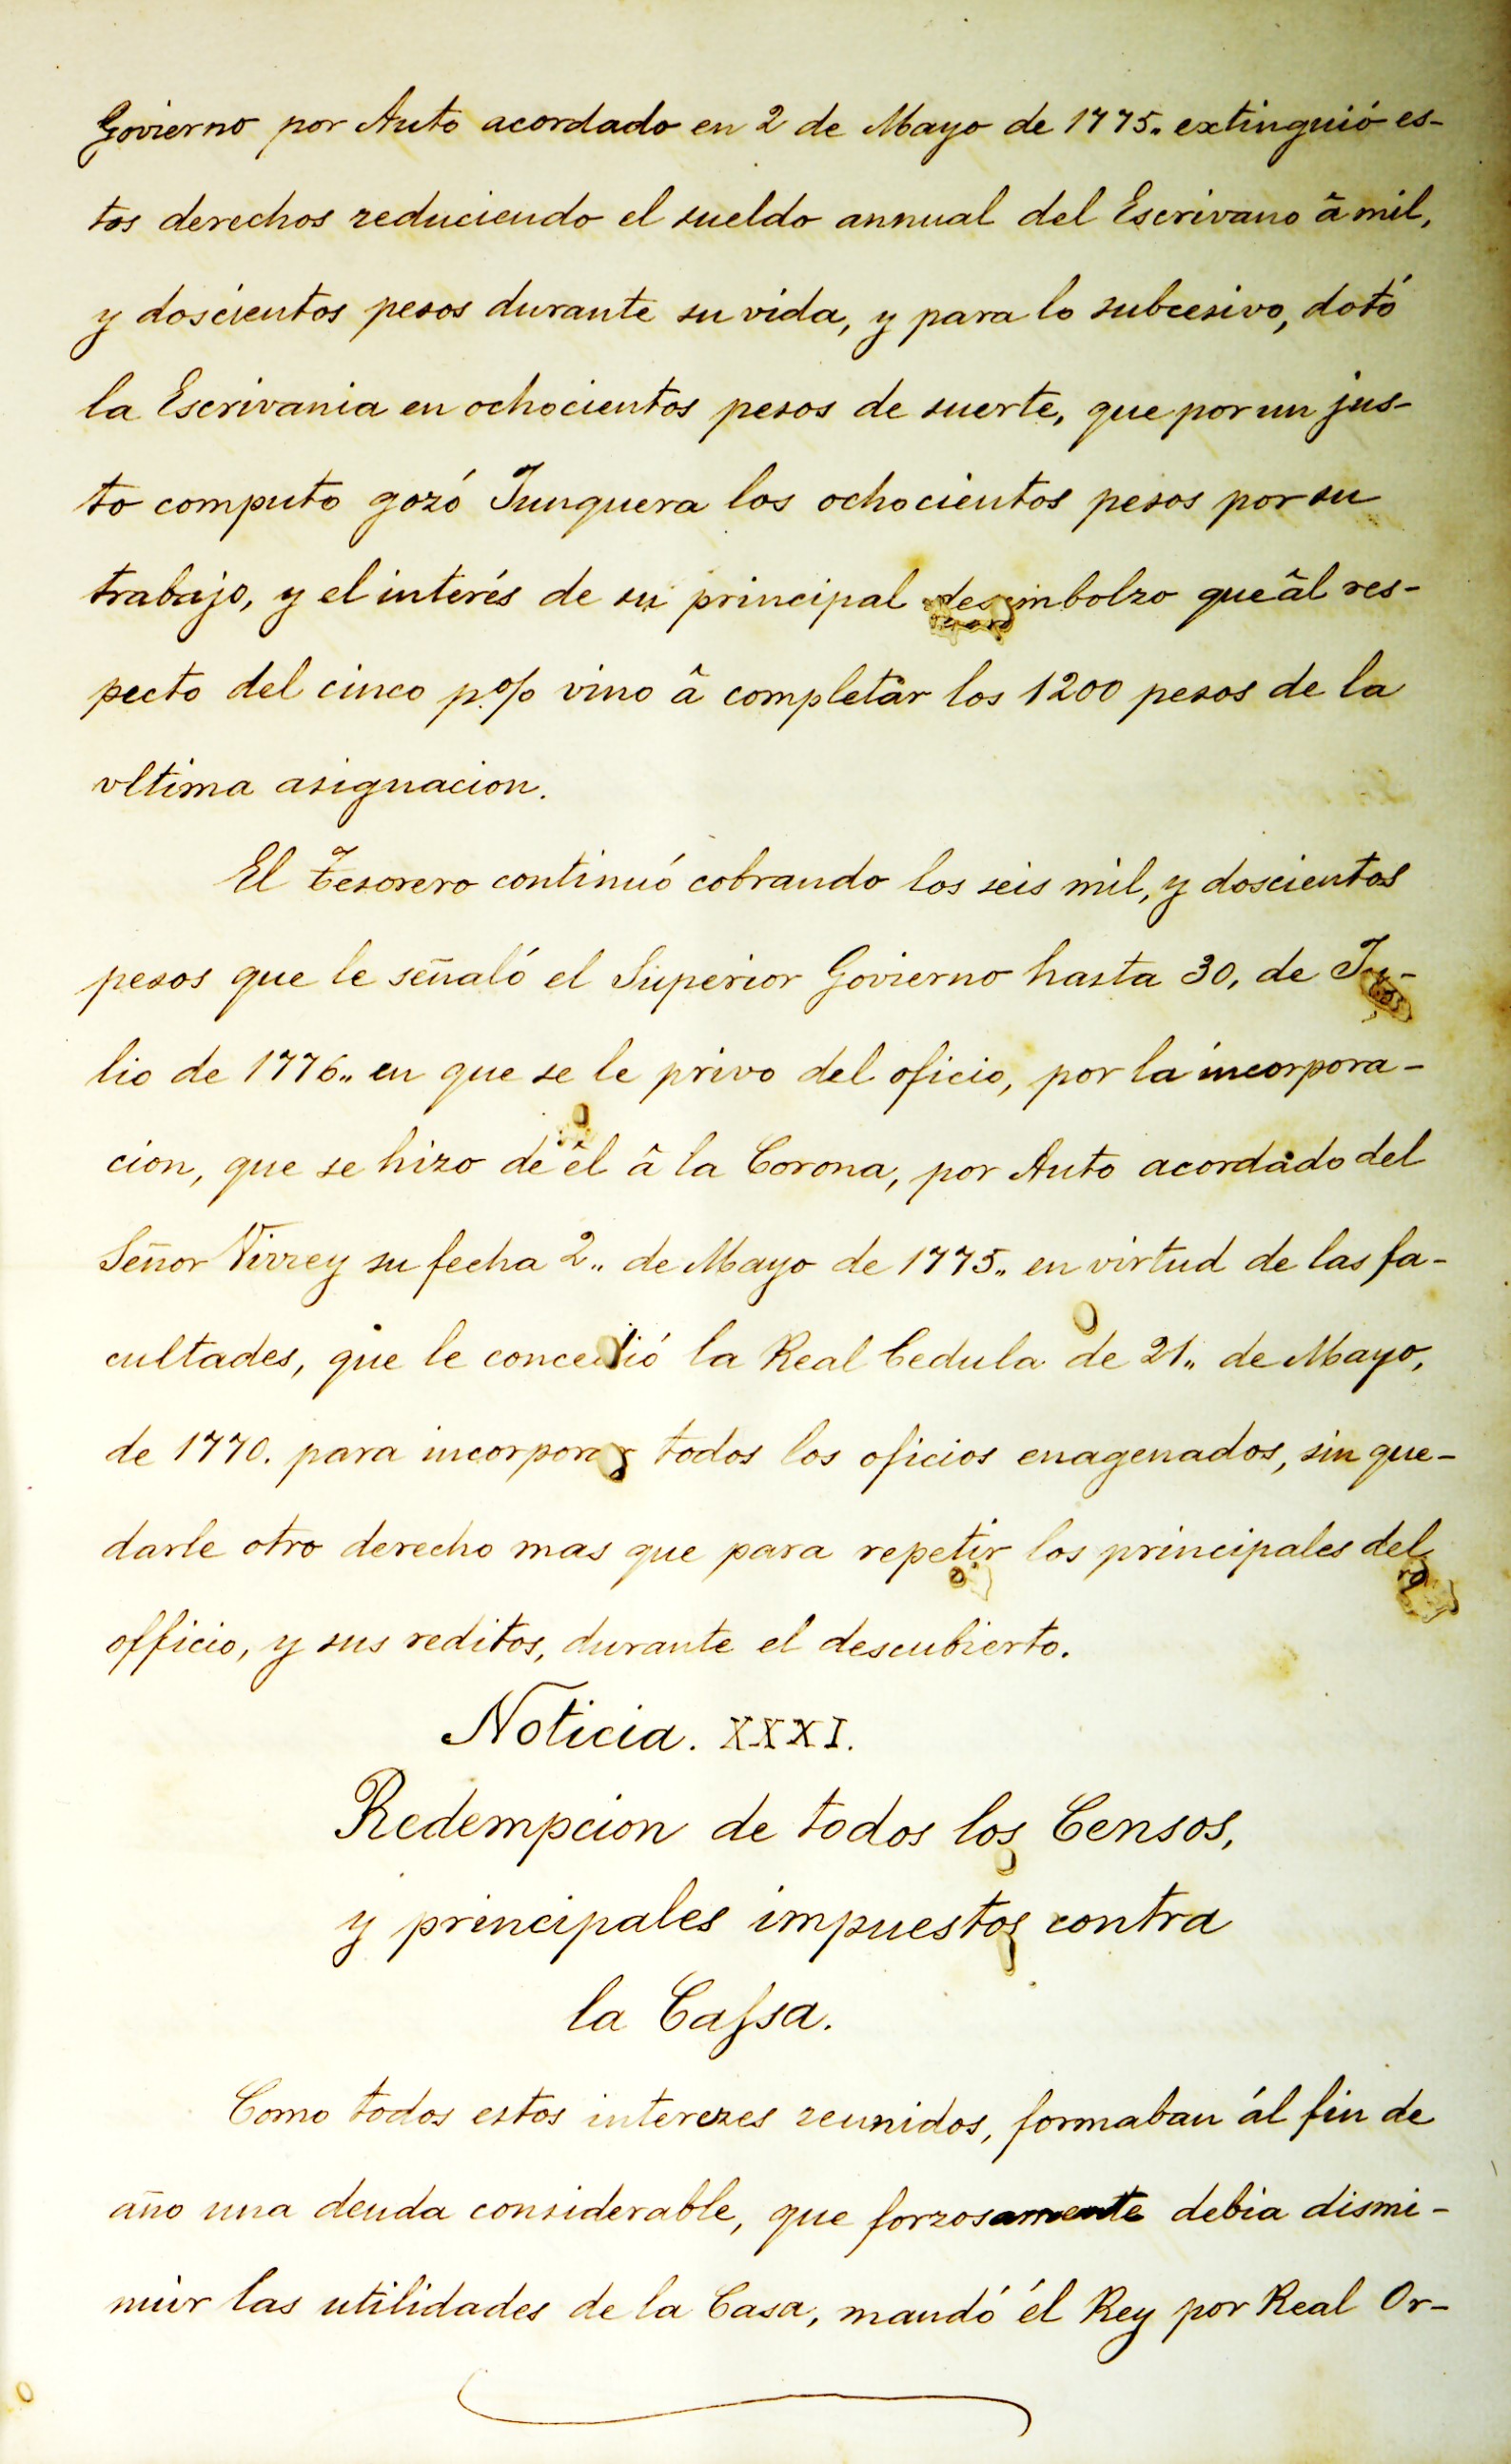 Govierno por Auto acordado en 2 de Mayo de 1775„ extinguió es-
tos derechos reduciendo el sueldo annual del Escrivano â mil,
y doscientos pesos durante su vida, y para lo subcesivo, dotó
la Escrivania en ochocientos pesos de suerte, que por un jus-
to computo gozó Junquera los ochocientos pesos por su
trabajo, y el interés de su principal desimbolzo que âl res-
pecto del cinco p.% vino â completar los 1200 pesos de la
vltima asignacion.
El Tesorero continuó cobrando los seis mil, y doscientos
pesos que le señaló el Superior Govierno hasta 30, de Ju-
lio de 1776„ en que se le privo del oficio, por la incorpora-
cion, que se hizo de êl â la Corona, por Auto acordado del
Señor Virrey su fecha 2„ de Mayo de 1775„ en virtud de las fa-
cultades, que le concedió la Real Cedula de 21„ de Mayo,
de 1770. para incorporar todos los oficios enagenados, sin que-
darle otro derecho mas que para repetir los principales del
officio, y sus reditos, durante el descubierto.
Noticia. XXXI.
Redempcion de todos los Censos,
y principales impuestos contra
la Caſsa.
Como todos estos interezes reunidos, formaban ál fin de
año una deuda considerable, que forzosamente debia dismi-
nuir las utilidades de la Casa, mandó él Rey por Real Or-